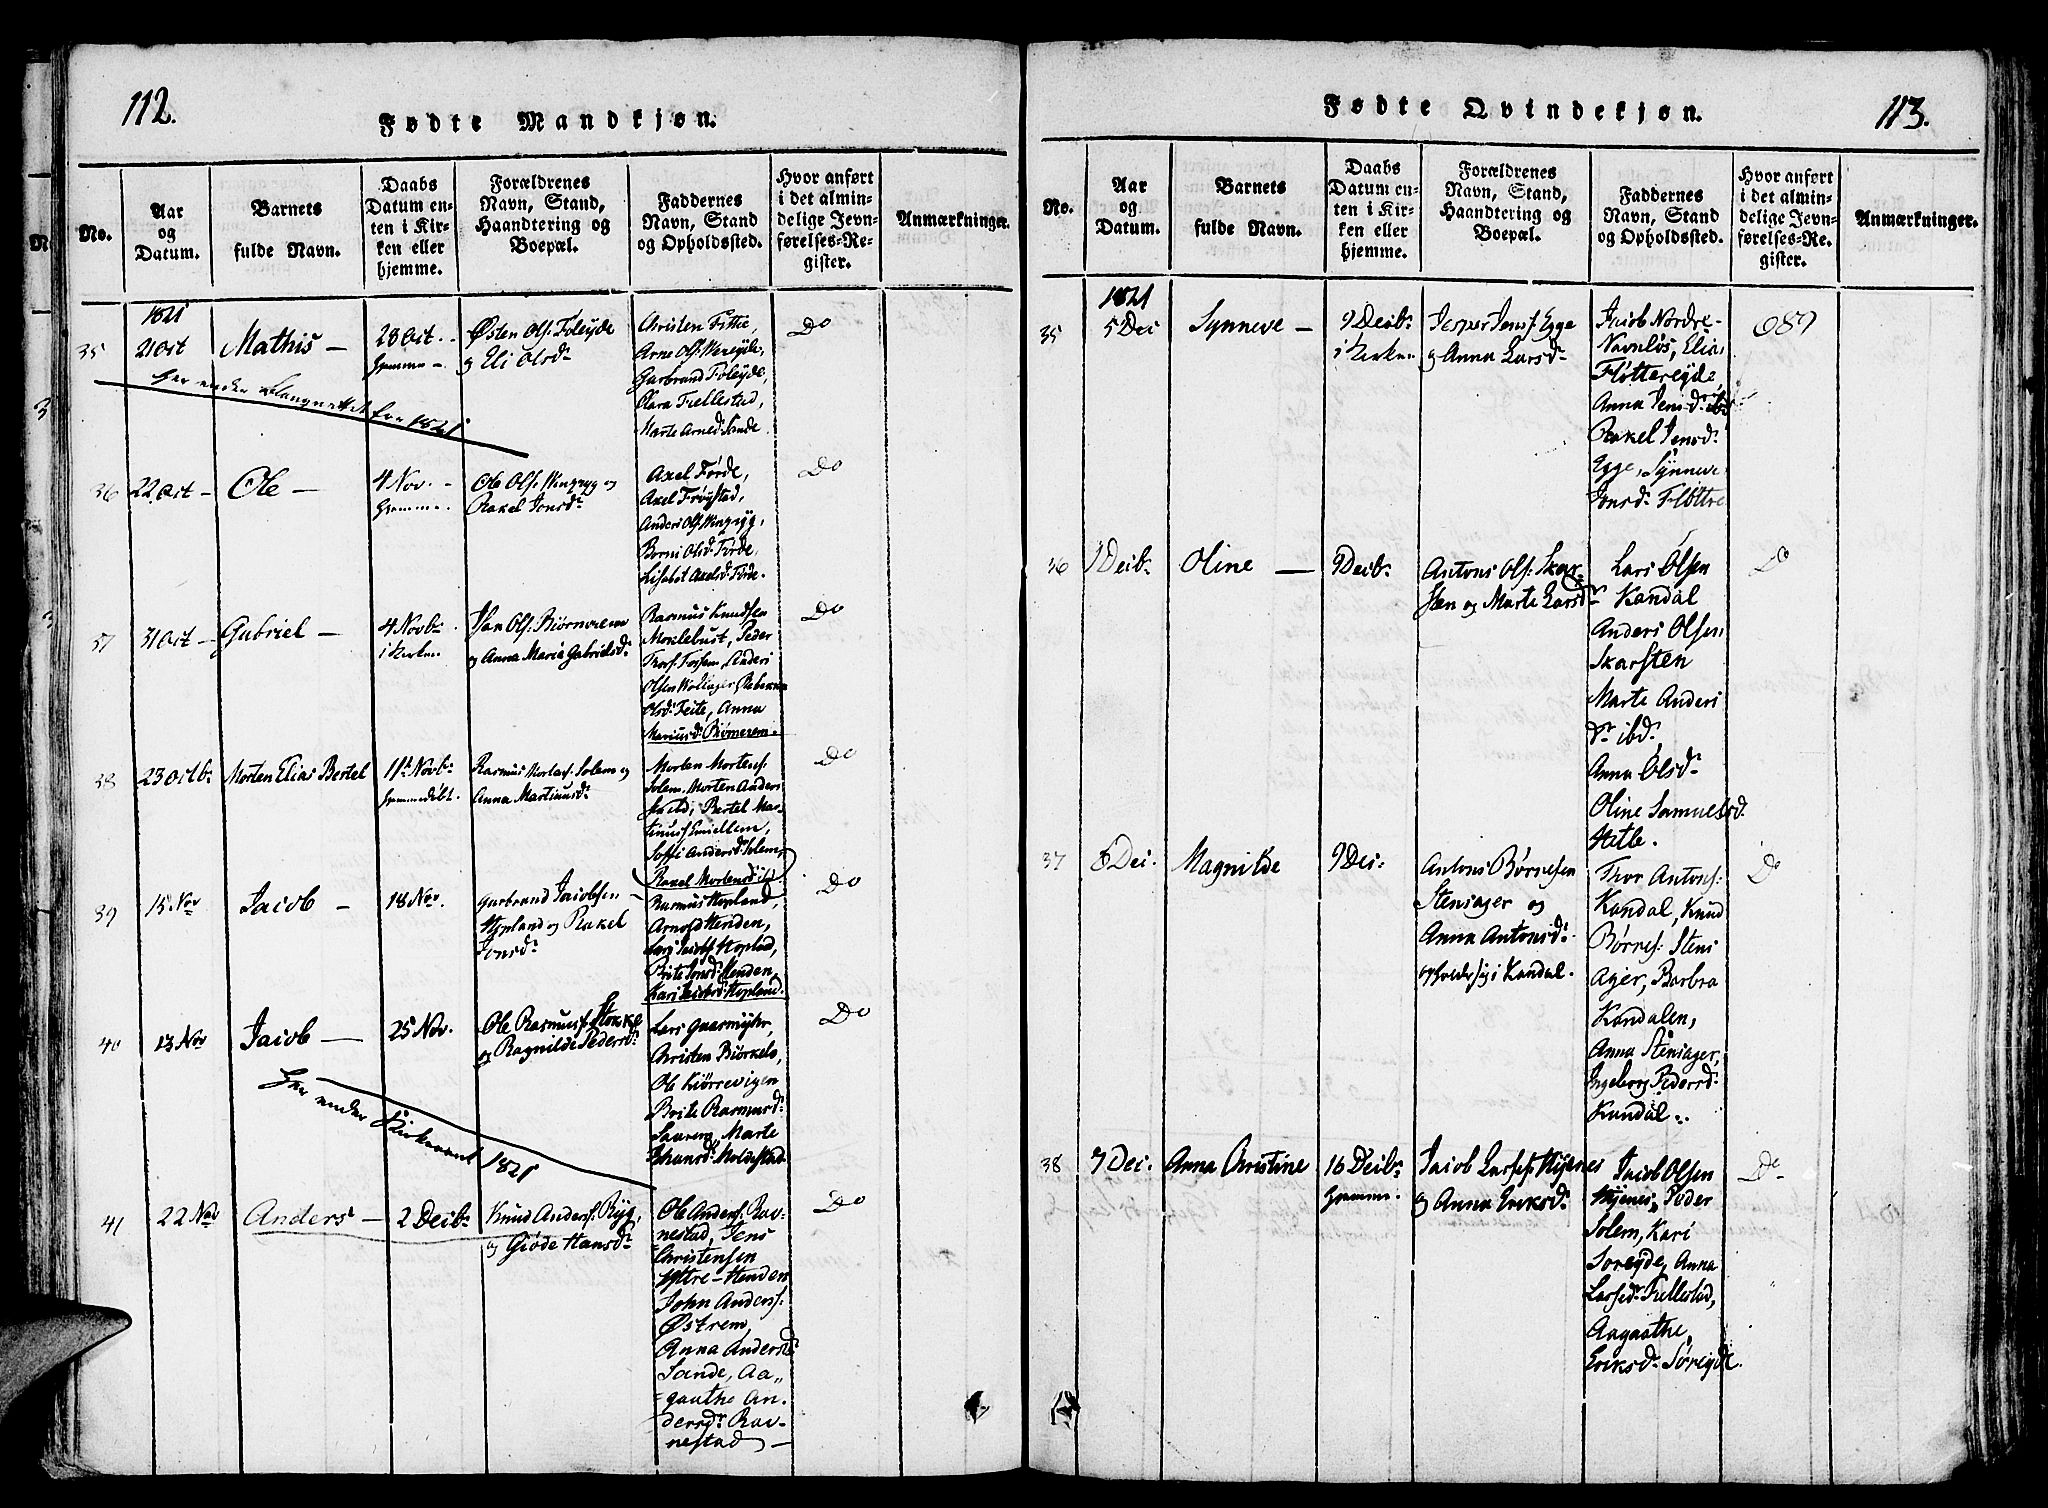 112.
Fødte Mandkjøn.
No.
Aar
og
Datum.
Barnets
fulde Navn.
Daabs
Datum en-
ten i Kir-
ken eller
hjemme.
Forældrenes
Navn, Stand,
Haandtering og
Boepæl.
Faddernes
Navn, Stand
og Opholdssted.
Hvor anført
i det almin-
delige Jevn-
førelses-Re-
gister.
Anmærkninger.
1821
35
21 Oct
Mathis —
28 Oct.
hjemme
Østen Ols: Foleyde
og Eli Olsdr
Christen Fitte,
Arne Ols:
Gurbrand Foleyde,
Fiellestad,
Marte Arned: Sande
Do
Her ender for 1821
36
22 Oct —
Ole —
4 Nov. -
hjemme.
Ole Ols: og
Rakel Jonsdr
Axel Førde,
Axel Frøystad,
Anders Ols:
Olsd: Førde,
Lisabet Axelsd: Førde.
Do
37
31 Oct —
Gabriel —
4 Novb:
i Kirken
Ols:
og Anna Maria Gabrielsdr
Rasmus Knudsen
Moklebust, Peder
Anders
Olsen
Olsd: Feite, Anna
Do
38
23 Octb:
Morten Elias Bertel
11te Novb:
hjemmedøbt.
Rasmus Solem og
Anna Martinusdr
Morten Mortens:
Solem, Morten Anders
Bertel Mar-
tinus:
Andersd: Solem,
Rakel Mortensd: ibd.
Do
39
15 Nov
Jacob —
18 Nov.
Gurbrand Jacobsen
Hopland og Rakel
Jonsdr
Rasmus Hopland,
Arnold Henden,
Lars Jacobs: Hopland,
Brite Jonsd: Henden,
Kari Jacobsd: Hopland.
Do
40
13 Nov
Jacob —
25 Nov.
Ole Rasmus:
og Ragnilde Pedersdr
Lars
Christen Biørkelo,
Ole Kiørrevigen
Brite Rasmusd:
Marte
Moldestad
Do
Her ender Kirkeaaret 1821
41
22 Nov
Anders —
2 Decib:
Knud Anders: Ryg,
og Giøde Hansdr
Ole Anders: Rav-
nestad, Jens
Christensen
Yttre-Henden
John Anders:
Østrem,
Anna Andersd
Sande, Aa-
gaathe An-
dersdr Rav-
nestad —
Do
113.
Fødte Qvindekjøn.
No.
Aar
og
Datum.
Barnets
fulde Navn.
Daabs
Datum en-
ten i Kir-
ken eller
hjemme.
Forældrenes
Navn, Stand,
Haandtering og
Boepæl.
Faddernes
Navn, Stand
og Opholdssted.
Hvor anført
i det almin-
delige Jevn-
førelses-Re-
gister.
Anmærkninger.
1821
35
5 Dec
Synneve —
9 Decib:
i Kirken
Jesper Jens: Egge
og Anna Larsdr
Jacob Nordre-
Navnløs, Elias
Fløttereyde
Anna Jensdr ibd
Rakel Jensdr
Egge, Synneve
Jonsdr Fløttre
689
36
1 Decib:
Oline —
9 Decib:
Antoni Ols: Skar-
sten og Marte Larsdr
Lars Olsen
Kandal
Anders Olsen
Skarsten
Marte Anders
dr ibd:
Anna Olsdr
Oline Samuelsd:
Hetle.
Do
37
8 Dec.
Magnilde
9 Dec:
Antoni Børnesen
Stensager og
Anna Antonisdr
opholder sig i Kandal.
Thor Antons:
Kandal, Knud
Børnes: Stens
Ager, Barbra
Kandalen,
Anna Stensager,
Ingeborg Pedersdr
Kandal..
Do
38
7 Dec.
Anna Christine
16 Decib:
hjemme.
Jacob Larses: Hyenes
og Anna Eriksdr
Jacob Olsen
Hyenes, Peder
Solem, Kari
Soreyde, Anna
Larsedr Fiellestad,
Aagaathe
Eriksdr Søreyde.
Do